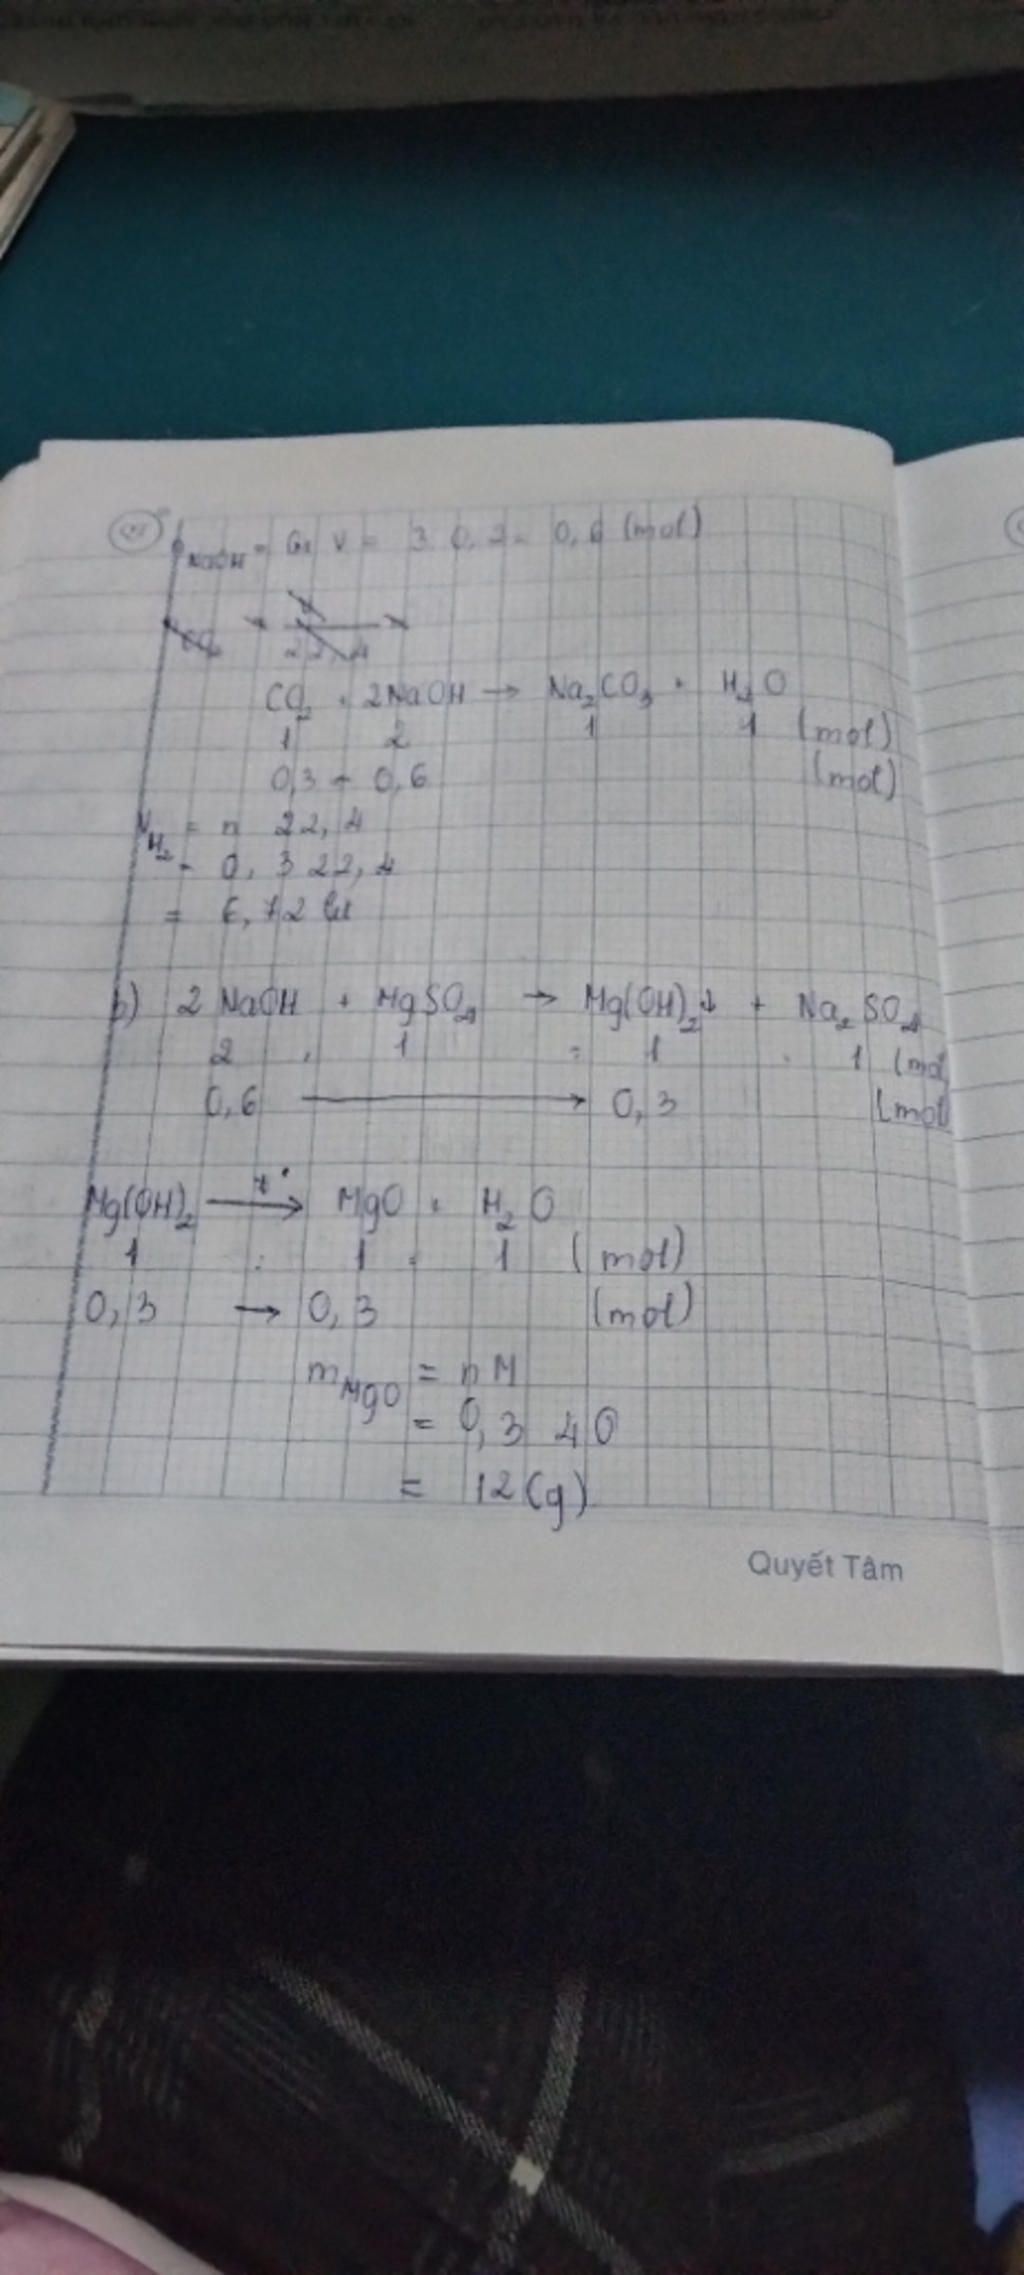 NaOH = CM V = 3 0,2 = 0,6 (mol)
22,4
CO2 + 2NaOH → Na2CO3 + H2O
1 2 1 1 (mol)
0,3 ← 0,6 (mol)
VH2 = n 22,4
= 0,3 22,4
= 6,72 lít
b) 2 NaOH + MgSO4 → Mg(OH)2↓ + Na2SO4
2 : 1 : 1 : 1 (mol
0,6 → 0,3 (mol
Mg(OH)2 t° → MgO + H2O
1 : 1 : 1 (mol)
0,3 → 0,3 (mol)
mMgO = n M
= 0,3 40
= 12 (g)
Quyết Tâm